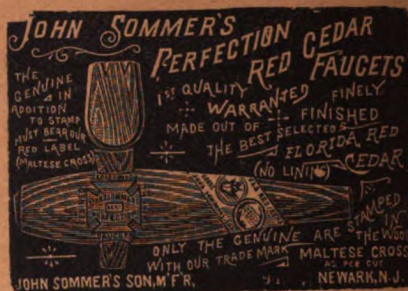 JOHN SOMMER'S
PERFECTION RED CEDAR
FAUCETS
THE
GENUINE
IN
ADDITION
TO STAMP
MUST BEAR OUR
RED LABEL
(MALTESE CROSS)
1ST QUALITY
WARRANTED FINELY
FINISHED
MADE OUT OF
THE BEST SELECTED
FLORIDA RED
CEDAR
(NO LINING)
ONLY THE GENUINE ARE STAMPED
IN
THE WOOD
WITH OUR TRADE MARK
MALTESE CROSS
AS PER CUT
JOHN SOMMER'S SON, M'F'R,
NEWARK, N.J.